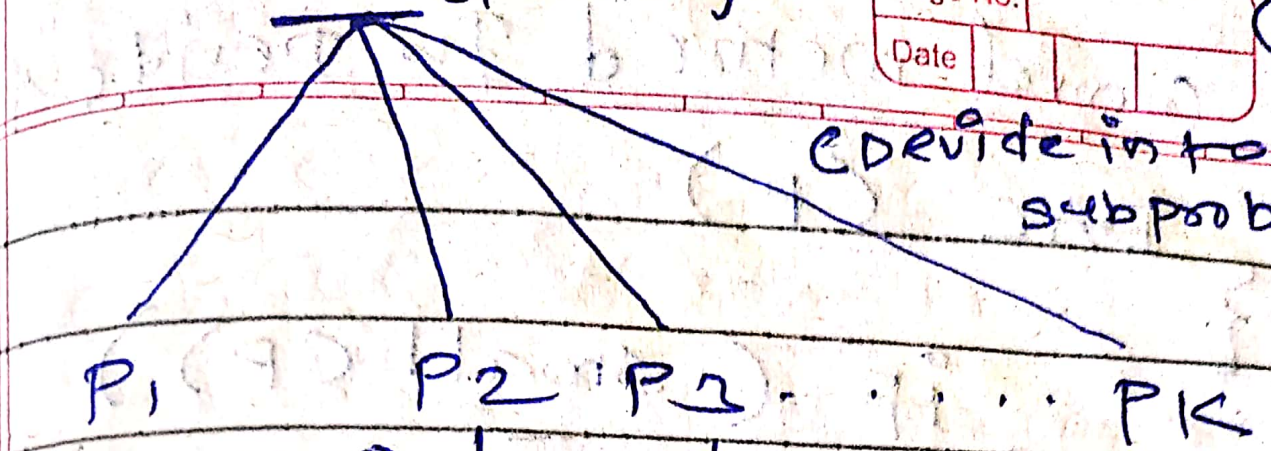 Date
(Devide into
subprob
P1 P2 P3 . . . . . PK